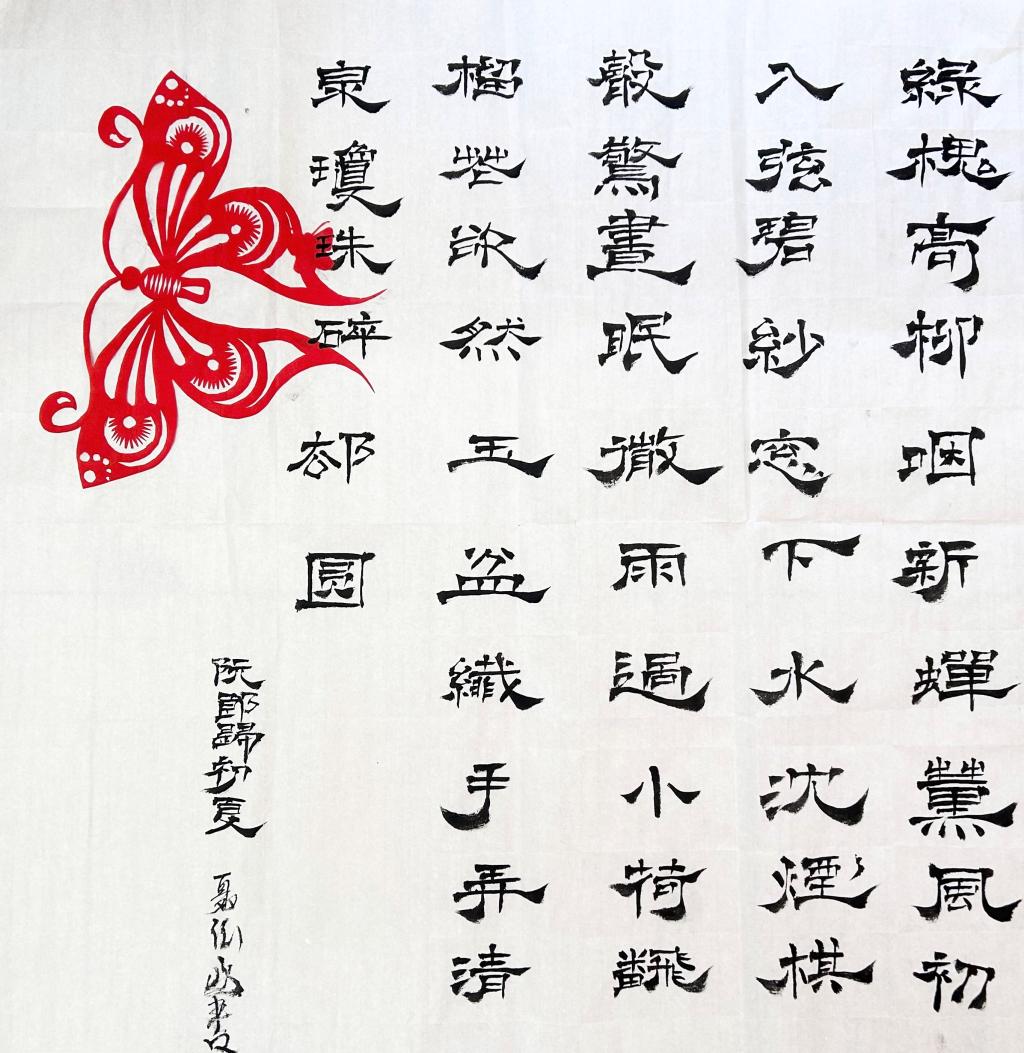 綠槐高柳咽新蟬薰風初
入弦碧紗窓下水沈煙棋
聲驚晝眠微雨過小荷飜
榴花欲然玉盆纖手弄清
泉瓊珠碎卻圓
阮郎歸初夏